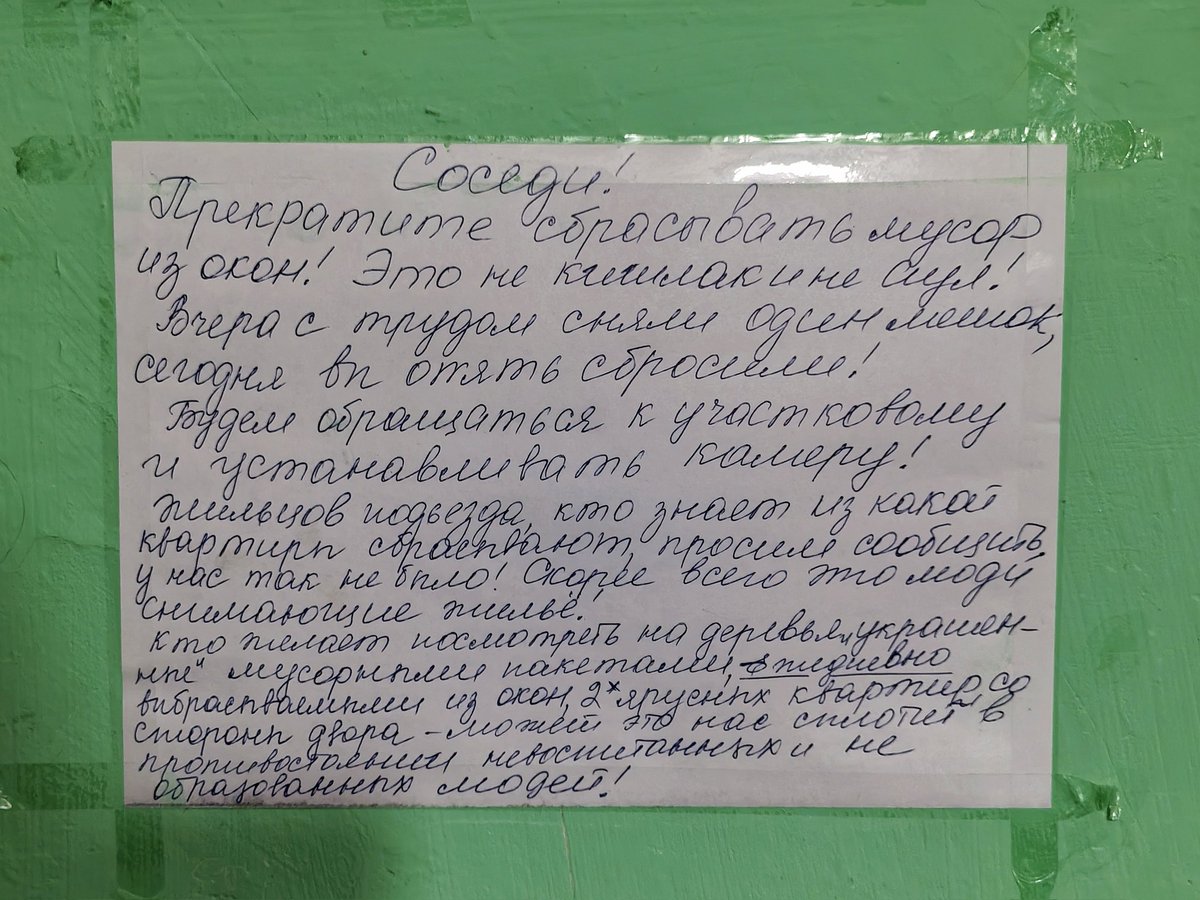 Соседи!
Прекратите сбрасывать мусор
из окон! Это не кишлак и не аул!
Вчера с трудом сняли один мешок,
сегодня вы опять сбросили!
Будем обращаться к участковому
и устанавливать камеру!
Жильцов подьезда, кто знает из какой
квартиры сбрасывают, просим сообщить,
у нас так не было! Скорее всего это люди
снимающие жильё!
Кто желает посмотреть на деревья „украшен-
ные" мусорными пакетами, ежедневно
выбрасываемыми из окон, 2х ярусных квартир, со
стороны двора - может это нас сплотит в
противостоянии невоспитанных и не
образованных людей!